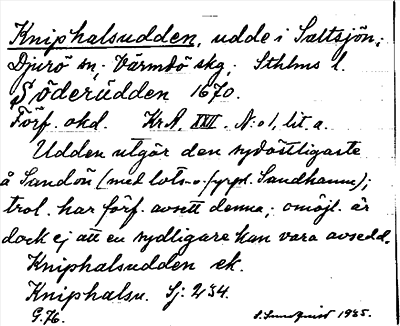 Kniphalsudden, udde i Saltsjön;
Djurö sn; Värmdö skg; Sthlms l.
Söderudden 1670.
Förf. okd. Kr.A. XXII. N:o 1, lit. a.
Udden utgör den sydöstligaste
å Sandön (med lots- o. fyrpl. Sandhamn);
trol. har förf. avsett denna; omöjl. är
dock ej att en sydligare kan vara avsedd.
Kniphalsudden ek.
Kniphalsu. Sj: 234.
G.76. S. Lundquist 1935.